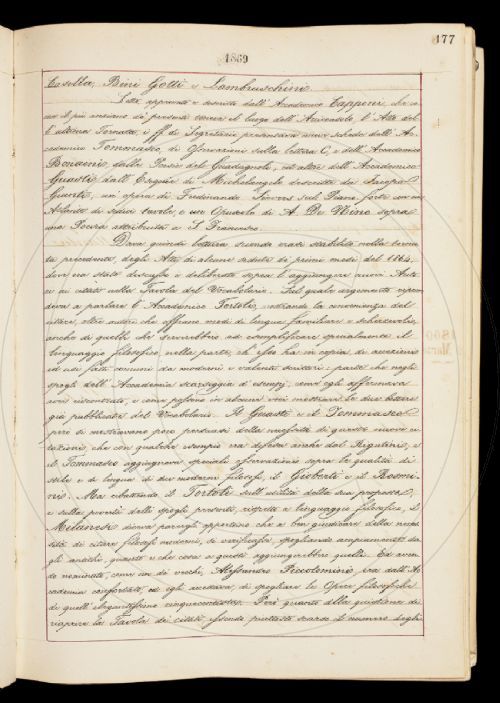 177
1869
Casella, Bini Gotti e Lambruschini
Letto approvato e sottoscritto dall' Accademico Capponi, che
era il più anziano de' presenti teneva il luogo dell' Arciconsolo, l' Atto del
l' ultima Tornata, i ff. di Segretario presentava nuove schede dell' Ac
cademico Tommaseo, di Osservazioni sulla lettera C, e dell' Accademico
Bonaini, dalle Poesie del Guadagnoli, ed altre dell' Accademico
Guasti dall' Esequie di Michelangelo descritte da Jacopo
Giunti, un' opera di Ferdinando Sievers sul Piano forte con un
Atlante di sedici tavole, e un Opuscolo di A. De Nino sopra
una Poesia attribuita a S. Francesco.
Dava quindi lettura, secondo erasi stabilito nella torna
ta precedente, degli Atti di alcune sedute de' primi mesi del 1864,
dove era stato discusso e deliberato sopra l' aggiungere nuovi Auto
ri ai citati nella Tavola del Vocabolario. Sul quale argomento repren
deva a parlare l' Accademico Tortoli, mostrando la convenienza del
citare, oltre autori che offrano modi di lingua familiare e scherzevole,
anche di quelli che servirebbero ad esemplificare specialmente il
linguaggio filosofico nella parte, ch' esso ha in copia di accezioni
ed usi fatti comuni da moderni e valenti scrittori: parte che negli
spogli dell' Accademia scarseggia d' esempj, com' egli affermava
aver riscontrato, e come poteva in alcune voci mostrare le due lettere
già pubblicate del Vocabolario. Il Guasti e il Tommaseo
però si mostravano poco persuasi della necessità di queste nuove ci
tazioni, che con qualche esempio era difesa anche dal Rigutini, e
il Tommaseo aggiungeva speciali osservazioni sopra la qualità di
stile e di lingua di due moderni filosofi, il Gioberti e il Rosmi
ni. Ma ribattendo il Tortoli sull' utilità della sua proposta,
e sulla povertà degli spogli presenti, rispetto a linguaggio filosofico, il
Milanesi diceva parergli opportuno che a ben giudicare della neces
sità di citare filosofi moderni, si verificasse, spogliando ampiamente da
gli antichi, quanto e che cosa a questi aggiungerebbero quelli. Ed aven
do nominato, come un de' vecchi, Alessandro Piccolomini, era dall' Ac
cademia confortato, ed egli accettava, di spogliare le Opere filosofiche
di quell' elegantissimo cinquecentista. Però quanto alla quistione di
riaprire la Tavola de' citati, essendo piuttosto scarso il numero degli